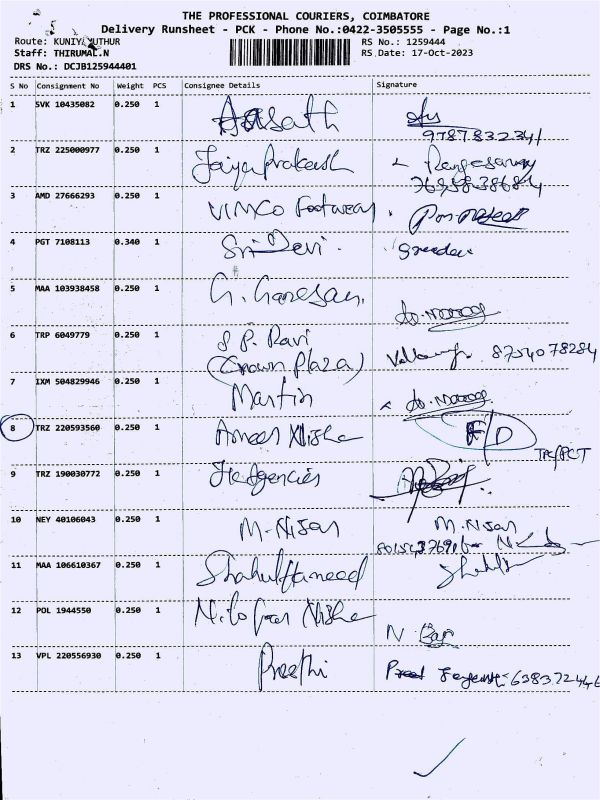 THE PROFESSIONAL COURIERS, COIMBATORE
Delivery Runsheet - PCK - Phone No.:0422-3505555 - Page No.:1
Route: KUNIYAMUTHUR RS No.: 1259444
Staff: THIRUMAL.N RS Date: 17-Oct-2023
DRS No.: DCJB125944401
S No Consignment No Weight PCS Consignee Details Signature
1 SVK 10435082 0.250 1 Aasath
9787832341
2 TRZ 225000977 0.250 1 Jaiya Prakash Rangasamy
7695838684
3 AMD 27666293 0.250 1 VIMCO Footwear
4 PGT 7108113 0.340 1 Sri Devi Sreedevi
5 MAA 103938458 0.250 1 G. Ganesan.
6 TRP 6049779 0.250 1 S P. Ravi
(Crown Plaza) 8754078284
7 IXM 504829946 0.250 1 Martin
8 TRZ 220593560 0.250 1 Ameer Nisha F/D
9 TRZ 190030772 0.250 1
10 NEY 40106043 0.250 1 M. Nisar M. Nisar
11 MAA 106610367 0.250 1 Shahul Hameed
12 POL 1944550 0.250 1 Nilofar Nisha
13 VPL 220556930 0.250 1 Preethi